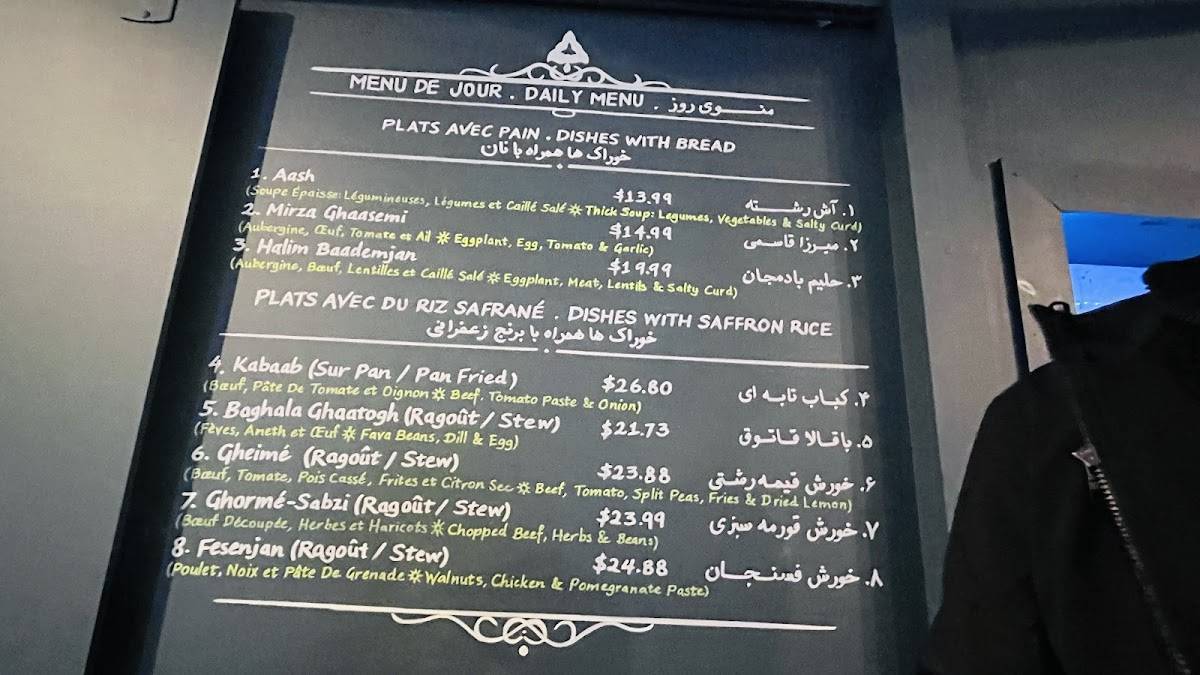 MENU DE JOUR . DAILY MENU . منوی روز
PLATS AVEC PAIN . DISHES WITH BREAD
خوراک ها همراه با نان
1. Aash $13.99 ۱. آش رشته
(Soupe Épaisse: Légumineuses, Légumes et Caillé Salé ☼ Thick Soup: Legumes, Vegetables & Salty Curd)
2. Mirza Ghaasemi $14.99 ۲. میرزا قاسمی
(Aubergine, Œuf, Tomate et Ail ☼ Eggplant, Egg, Tomato & Garlic)
3. Halim Baademjan $19.99 ۳. حلیم بادمجان
(Aubergine, Bœuf, Lentilles et Caillé Salé ☼ Eggplant, Meat, Lentils & Salty Curd)
PLATS AVEC DU RIZ SAFRANÉ . DISHES WITH SAFFRON RICE
خوراک ها همراه با برنج زعفرانی
4. Kabaab (Sur Pan / Pan Fried) $26.80 ۴. کباب تابه ای
(Bœuf, Pâte De Tomate et Oignon ☼ Beef, Tomato Paste & Onion)
5. Baghala Ghaatogh (Ragoût / Stew) $21.73 ۵. باقالا قاتوق
(Fèves, Aneth et Œuf ☼ Fava Beans, Dill & Egg)
6. Gheimé (Ragoût / Stew) $23.88 ۶. خورش قیمه رشتی
(Bœuf, Tomate, Pois Cassé, Frites et Citron Sec ☼ Beef, Tomato, Split Peas, Fries & Dried Lemon)
7. Ghormé-Sabzi (Ragoût / Stew) $23.99 ۷. خورش قورمه سبزی
(Bœuf Découpée, Herbes et Haricots ☼ Chopped Beef, Herbs & Beans)
8. Fesenjan (Ragoût / Stew) $24.88 ۸. خورش فسنجان
(Poulet, Noix et Pâte De Grenade ☼ Walnuts, Chicken & Pomegranate Paste)